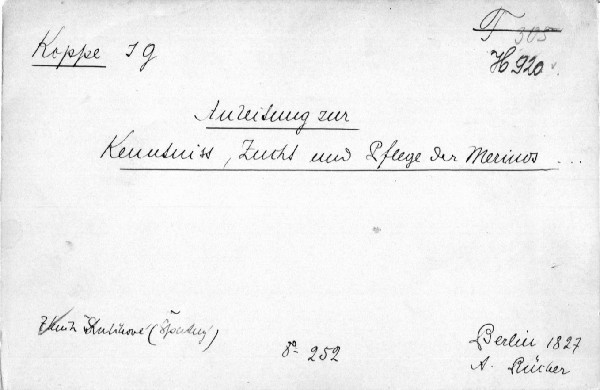 Koppe J G
T 305
H 920
Anleitung zur
Kenntniss, Zucht und Pflege der Merinos ...
8° 252
Berlin 1827
A. Rücher